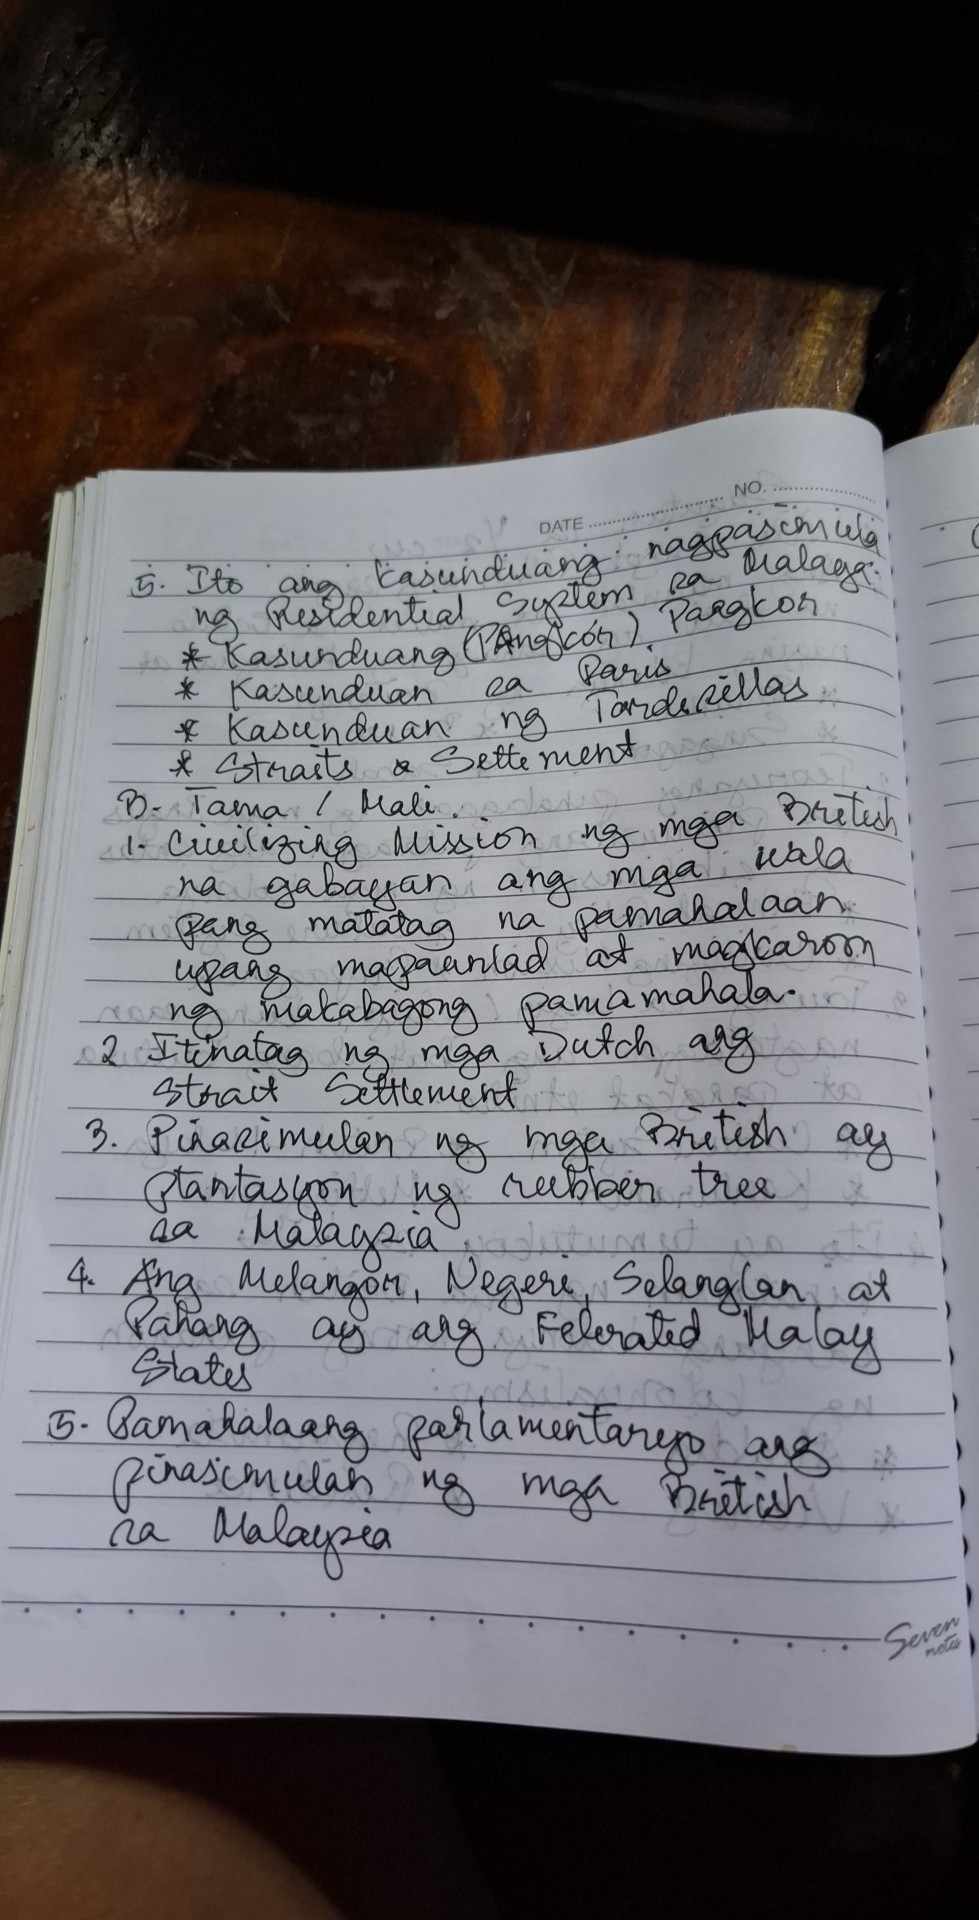 DATE ........................ NO. ..................
5. Ito ang kasunduang nagpasimula
ng Residential System sa Malaya.
* Kasunduang (PAngkor) Pangkor
* Kasunduan sa Paris
* Kasunduan ng Tordesillas
* Straits & Settement
B- Tama / Mali.
1- Civilizing Mission ng mga British
na gabayan ang mga wala
pang matatag na pamahalaan
upang mapaunlad at magkaroon
ng makabagong pamamahala.
2 Itinatag ng mga Dutch ang
Strait Settlement
3. Pinasimulan ng mga British ay
plantasyon ng rubber tree
sa Malaysia
4. Ang Melangor, Negeri, Selanglan at
Pahang ay ang Felerated Malay
States
5- Pamahalaang parlamentaryo ang
pinasimulan ng mga British
sa Malaysia
Seven
notes